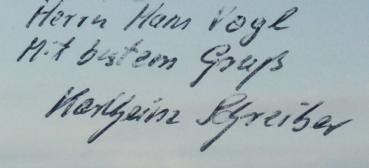 Herrn Hans Vogl
Mit bestem Gruß
Karlheinz Schreiber